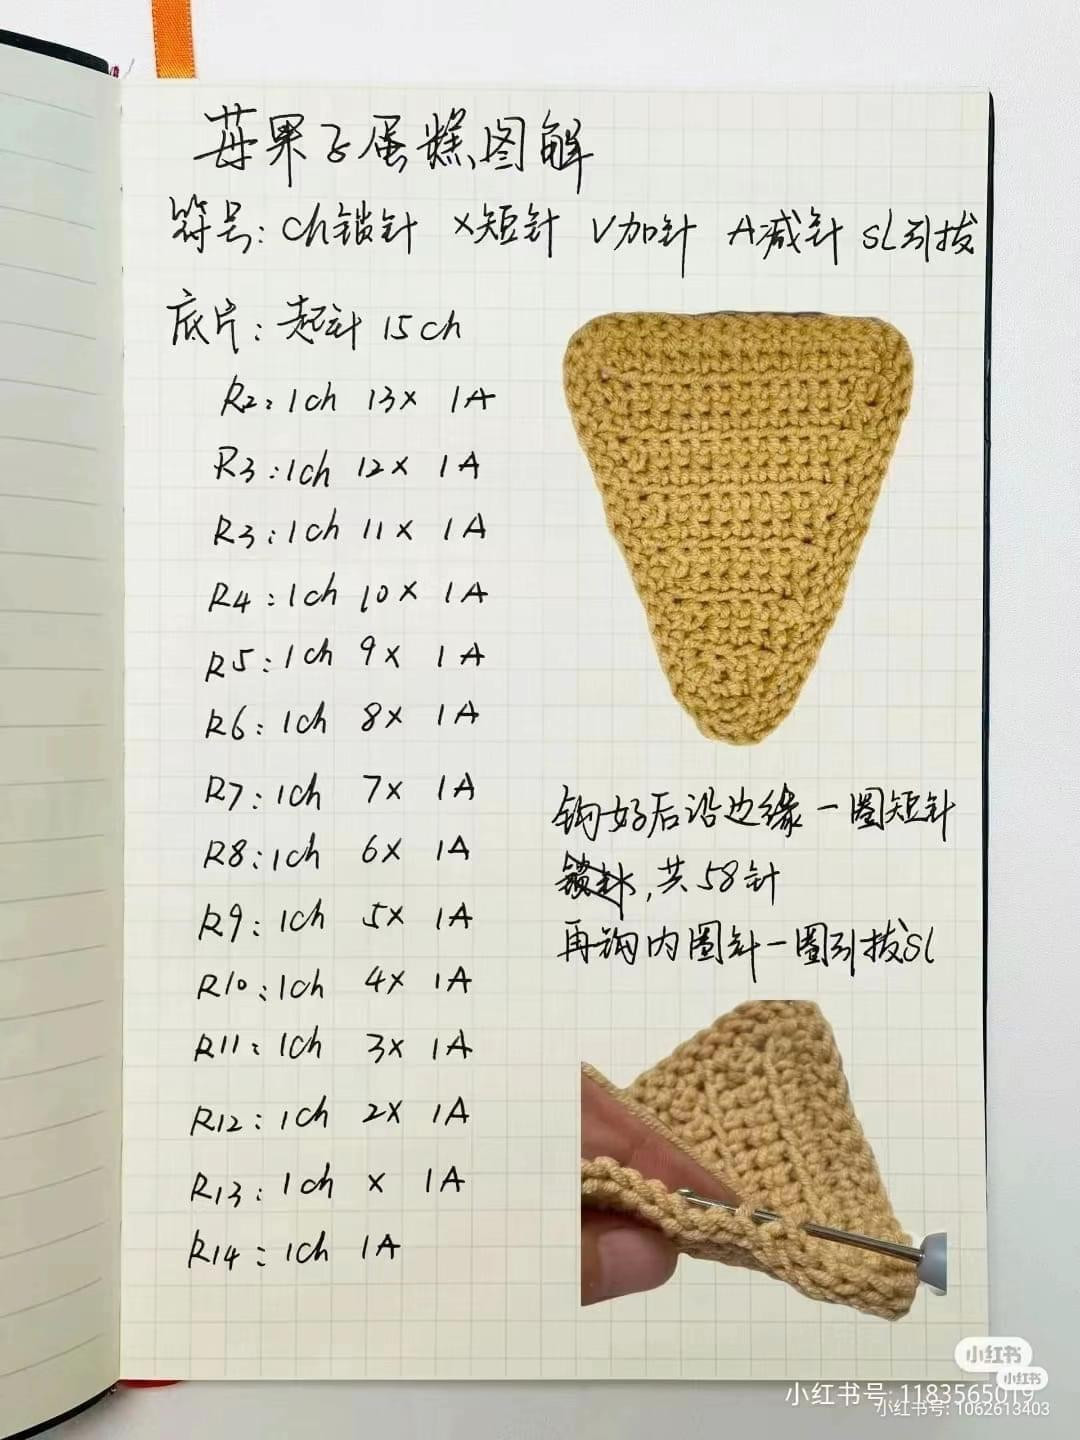 莓果子蛋糕图解
符号: ch锁针 X短针 V加针 A减针 SL引拔
底片: 起针 15ch
R2: 1ch 13X 1A
R3: 1ch 12X 1A
R3: 1ch 11X 1A
R4: 1ch 10X 1A
R5: 1ch 9X 1A
R6: 1ch 8X 1A
R7: 1ch 7X 1A
R8: 1ch 6X 1A
R9: 1ch 5X 1A
R10: 1ch 4X 1A
R11: 1ch 3X 1A
R12: 1ch 2X 1A
R13: 1ch X 1A
R14: 1ch 1A
钩好后沿边缘一圈短针
,共58针
再钩内圈针一圈引拔SL
小红书
小红书
小红书号: 1183565019
小红书号: 1062613403